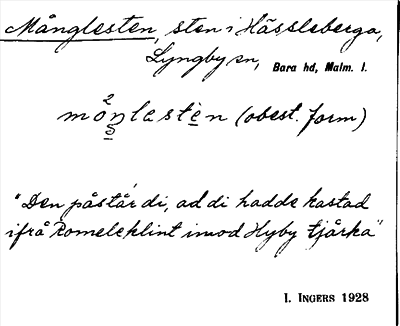 Månglesten, sten i Hässleberga,
Lyngby sn, Bara hd, Malm. l.
månlestèn (obest. form)
"Den påstår di, ad di hadde kastad
ifrå Romeleklint imod Hyby tjårka"
I. INGERS 1928